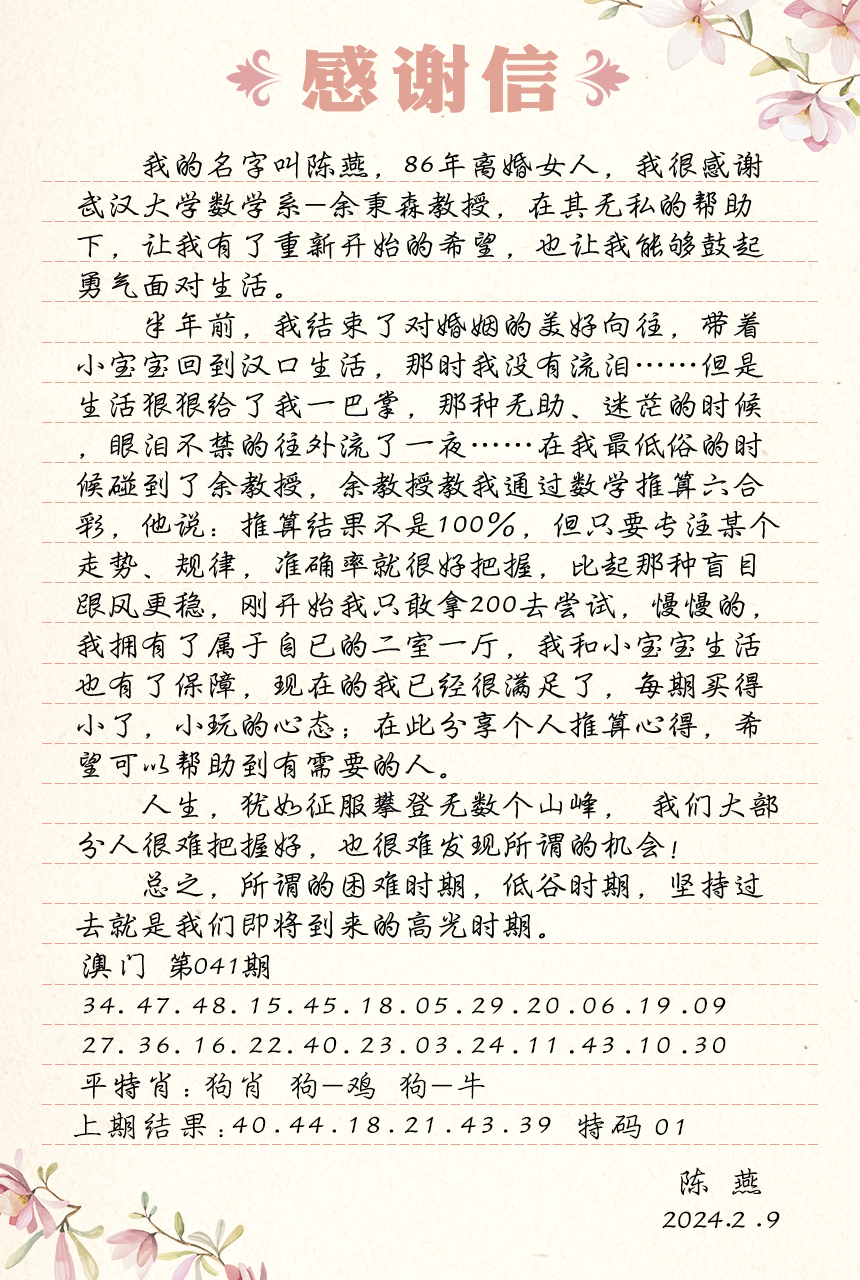 感谢信
我的名字叫陈燕，86年离婚女人，我很感谢
武汉大学数学系—余秉森教授，在其无私的帮助
下，让我有了重新开始的希望，也让我能够鼓起
勇气面对生活。
半年前，我结束了对婚姻的美好向往，带着
小宝宝回到汉口生活，那时我没有流泪……但是
生活狠狠给了我一巴掌，那种无助、迷茫的时候
，眼泪不禁的往外流了一夜……在我最低俗的时
候碰到了余教授，余教授教我通过数学推算六合
彩，他说：推算结果不是100%，但只要专注某个
走势、规律，准确率就很好把握，比起那种盲目
跟风更稳，刚开始我只敢拿200去尝试，慢慢的，
我拥有了属于自已的二室一厅，我和小宝宝生活
也有了保障，现在的我已经很满足了，每期买得
小了，小玩的心态；在此分享个人推算心得，希
望可以帮助到有需要的人。
人生，犹如征服攀登无数个山峰， 我们大部
分人很难把握好，也很难发现所谓的机会！
总之，所谓的困难时期，低谷时期，坚持过
去就是我们即将到来的高光时期。
澳门 第041期
34.47.48.15.45.18.05.29.20.06.19.09
27.36.16.22.40.23.03.24.11.43.10.30
平特肖：狗肖 狗—鸡 狗—牛
上期结果：40.44.18.21.43.39 特码 01
陈 燕
2024.2.9